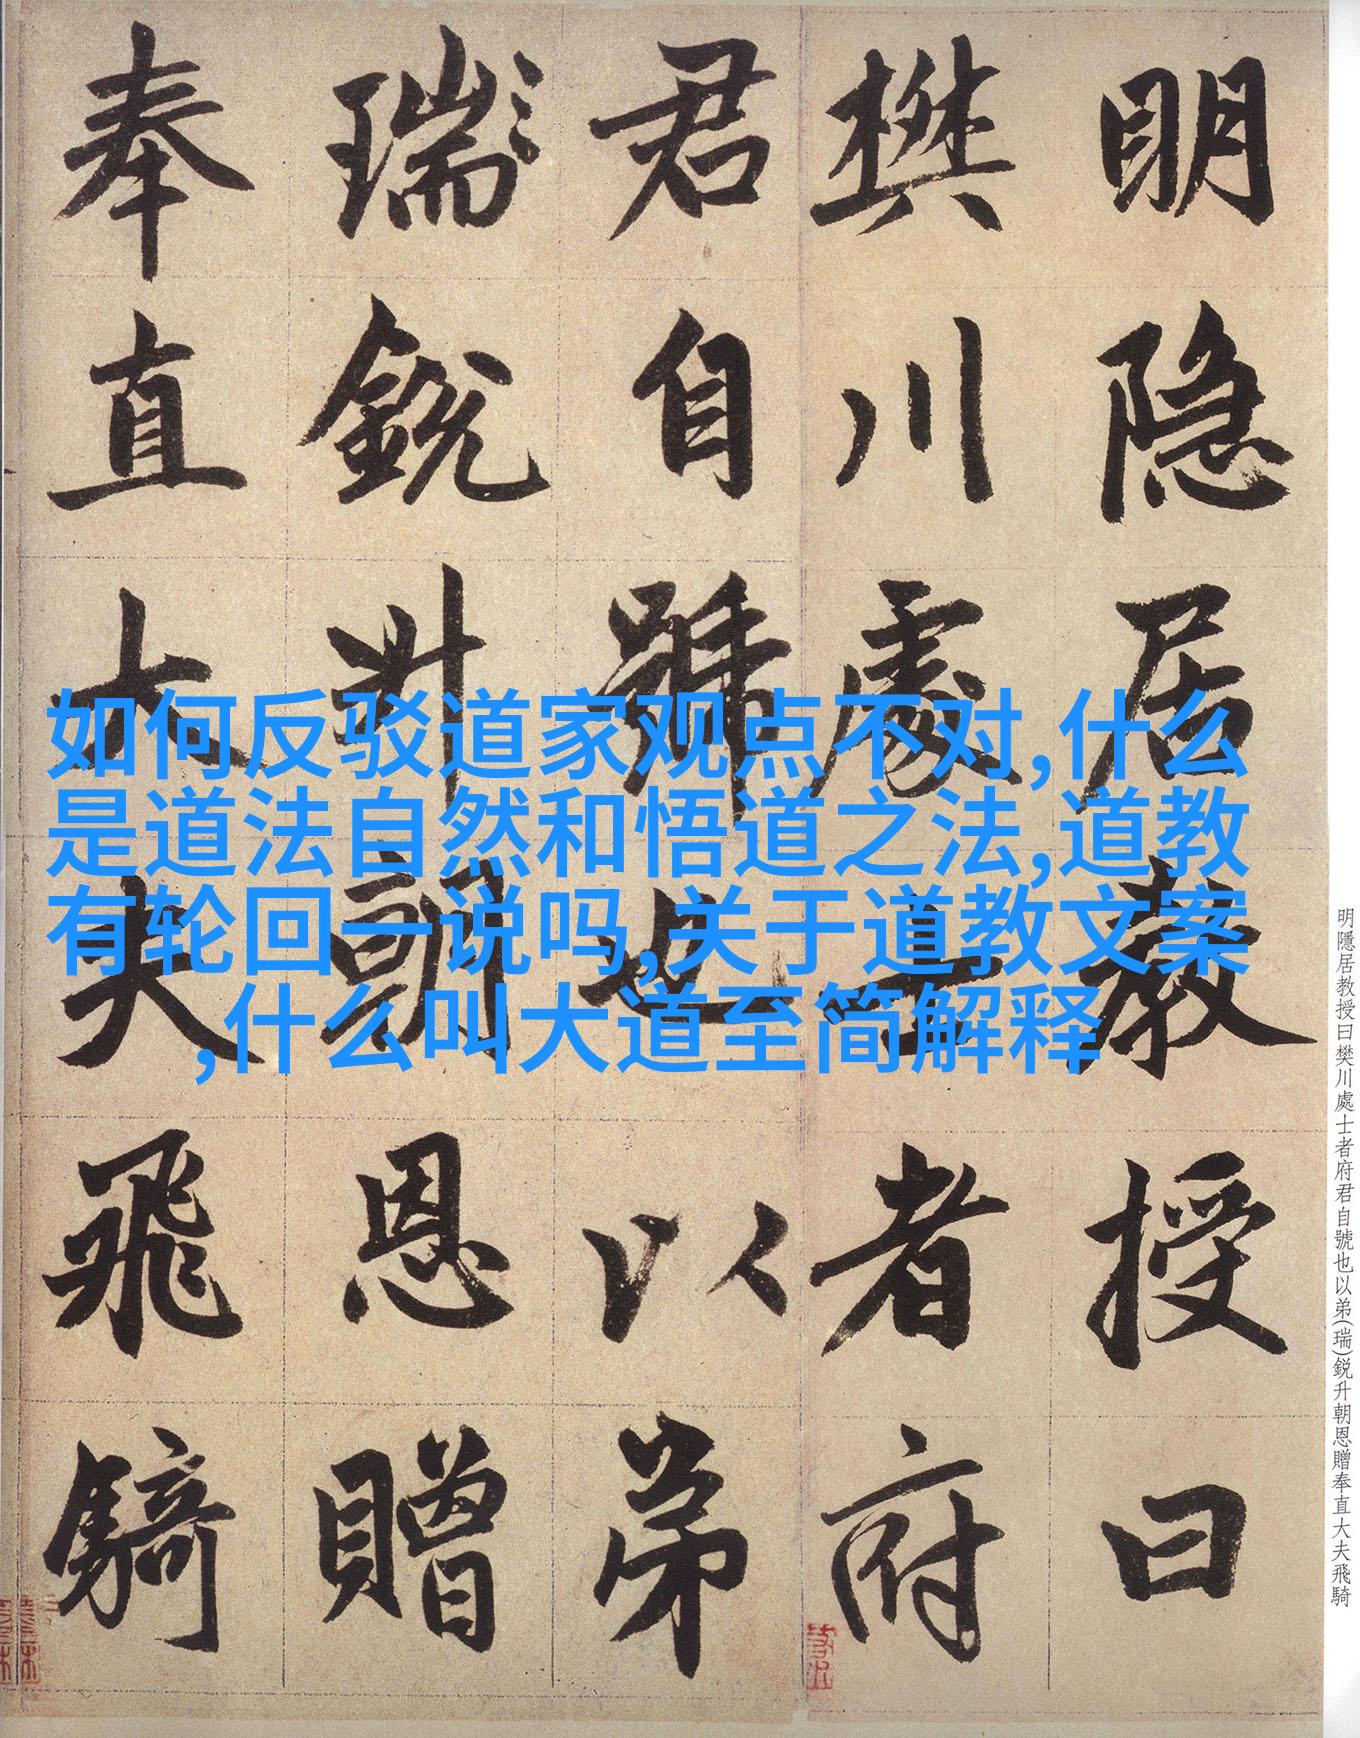 明隐居教授曰
樊川處士者府
君自號也以弟
瑞鋭升朝恩贈
奉直大夫飛騎
如何反驳道家观点不对,什么
是道法自然和悟道之法,道教
有轮回一说吗,关于道教文案
,什么叫大道至简解释
明隱居教授曰樊川處士者府君自號也以弟(瑞)鋭升朝恩贈奉直大夫飛騎